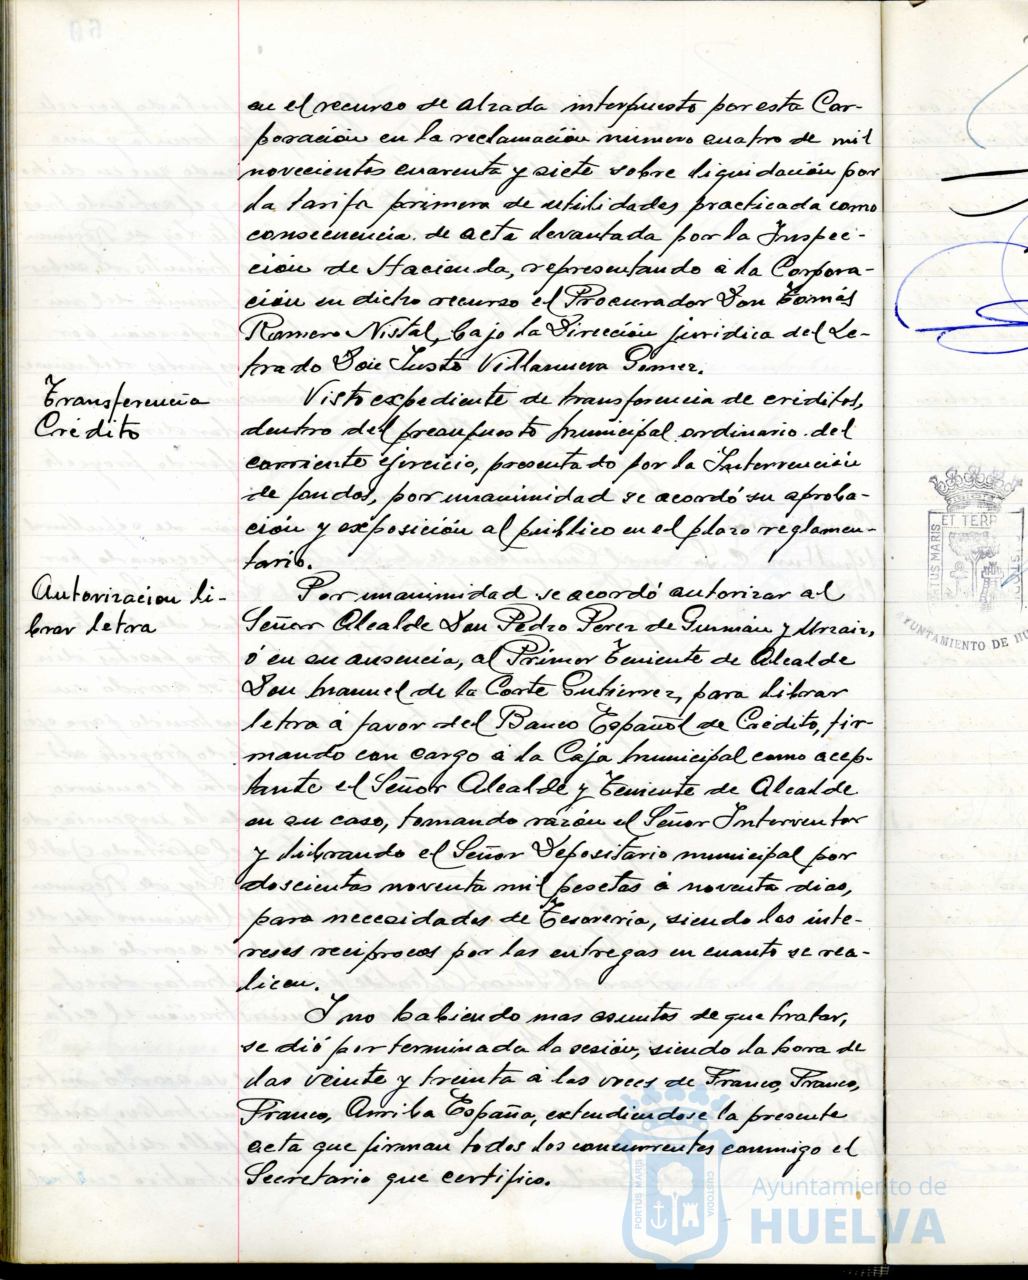 en el recurso de alzada interpuesto por esta Cor-
poración en la reclamación número cuatro de mil
novecientos cuarenta y siete sobre liquidación por
la tarifa primera de utilidades practicada como
consecuencia de acta levantada por la Inspec-
ción de Hacienda, representando á la Corpora-
ción en dicho recurso el Procurador Don Tomás
Romero Nistal, bajo la Dirección jurídica del Le-
trado Don Justo Villanueva Gomez.
Transferencia
Crédito
Visto expediente de transferencia de créditos,
dentro del presupuesto municipal ordinario del
corriente ejercicio, presentado por la Intervención
de fondos, por unanimidad se acordó su aproba-
ción y exposición al público en el plazo reglamen-
tario.
Autorizacion li-
brar letra
Por unanimidad se acordó autorizar al
Señor Alcalde Don Pedro Perez de Guzmán y Urzaiz,
ó en su ausencia, al Primer Teniente de Alcalde
Don Manuel de la Corte Gutierrez, para librar
letra á favor del Banco Español de Crédito, fir-
mando con cargo á la Caja Municipal como acep-
tante el Señor Alcalde y Teniente de Alcalde
en su caso, tomando razón el Señor Interventor
y librando el Señor Depositario municipal por
doscientas noventa mil pesetas á noventa dias,
para necesidades de Tesorería, siendo los inte-
reses reciprocos por las entregas en cuanto se rea-
licen.
I no habiendo mas asuntos de que tratar,
se dió por terminada la sesión, siendo la hora de
las veinte y treinta á las voces de Franco, Franco,
Franco, Arriba España, extendiendose la presente
acta que firman todos los concurrentes conmigo el
Secretario que certifico.
PORTUS MARIS
ET TERR
AYUNTAMIENTO DE HU
PORTUS MARIS CUSTODIA
Ayuntamiento de
HUELVA